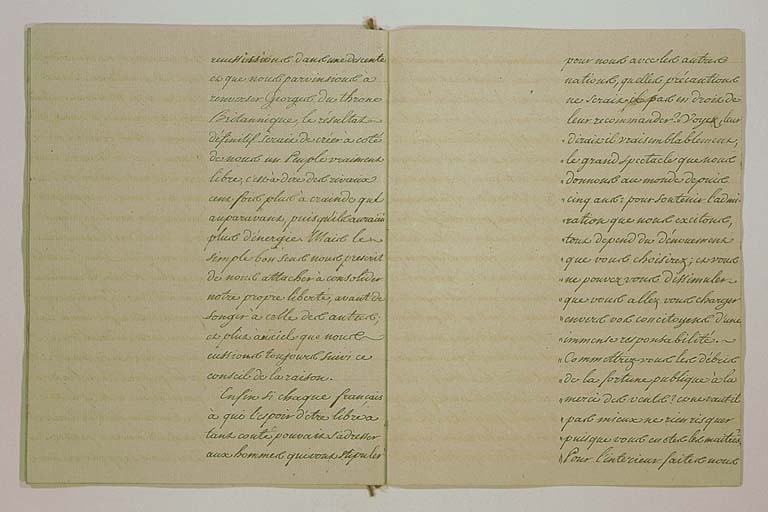 reussissions dans une descente
et que nous parvinssions à
renverser Georges du throne
Britannique, le résultat
définitif serait de créer à coté
de nous un Peuple vraiment
libre, c'est à dire des rivaux
cent fois plus à craindre qu'
auparavant, puisqu'ils auraient
plus d'énergie. Mais le
simple bon sens nous prescrit
de nous attacher à consolider
notre propre liberté, avant de
songer à celle des autres;
et plût à ciel que nous
eussions toujours suivi ce
conseil de la raison.
Enfin si chaque français
à qui l'espoir d'être libre a
tant couté pouvait s'adresser
aux hommes qui vont stipuler
pour nous avec les autres
nations, quelles précautions
ne serait il pas en droit de
leur recommander? Voyez, leur
dirait il vraisemblablement,
" le grand spectacle que nous
" donnons au monde depuis
" cinq ans: pour soutenir l'admi-
" ration que nous excitons,
" tout dépend du dénouement
" que vous choisirez; et vous
" ne pouvez vous dissimuler
" que vous allez vous charger
" envers vos concitoyens d'une
" immense responsabilité. -
" Commettrez-vous les débris
" de la fortune publique à la
" merci des vents? ce ne vaut il
" pas mieux ne rien risquer
" puisque vous en êtes les maîtres
" Pour l'intérieur faites nous